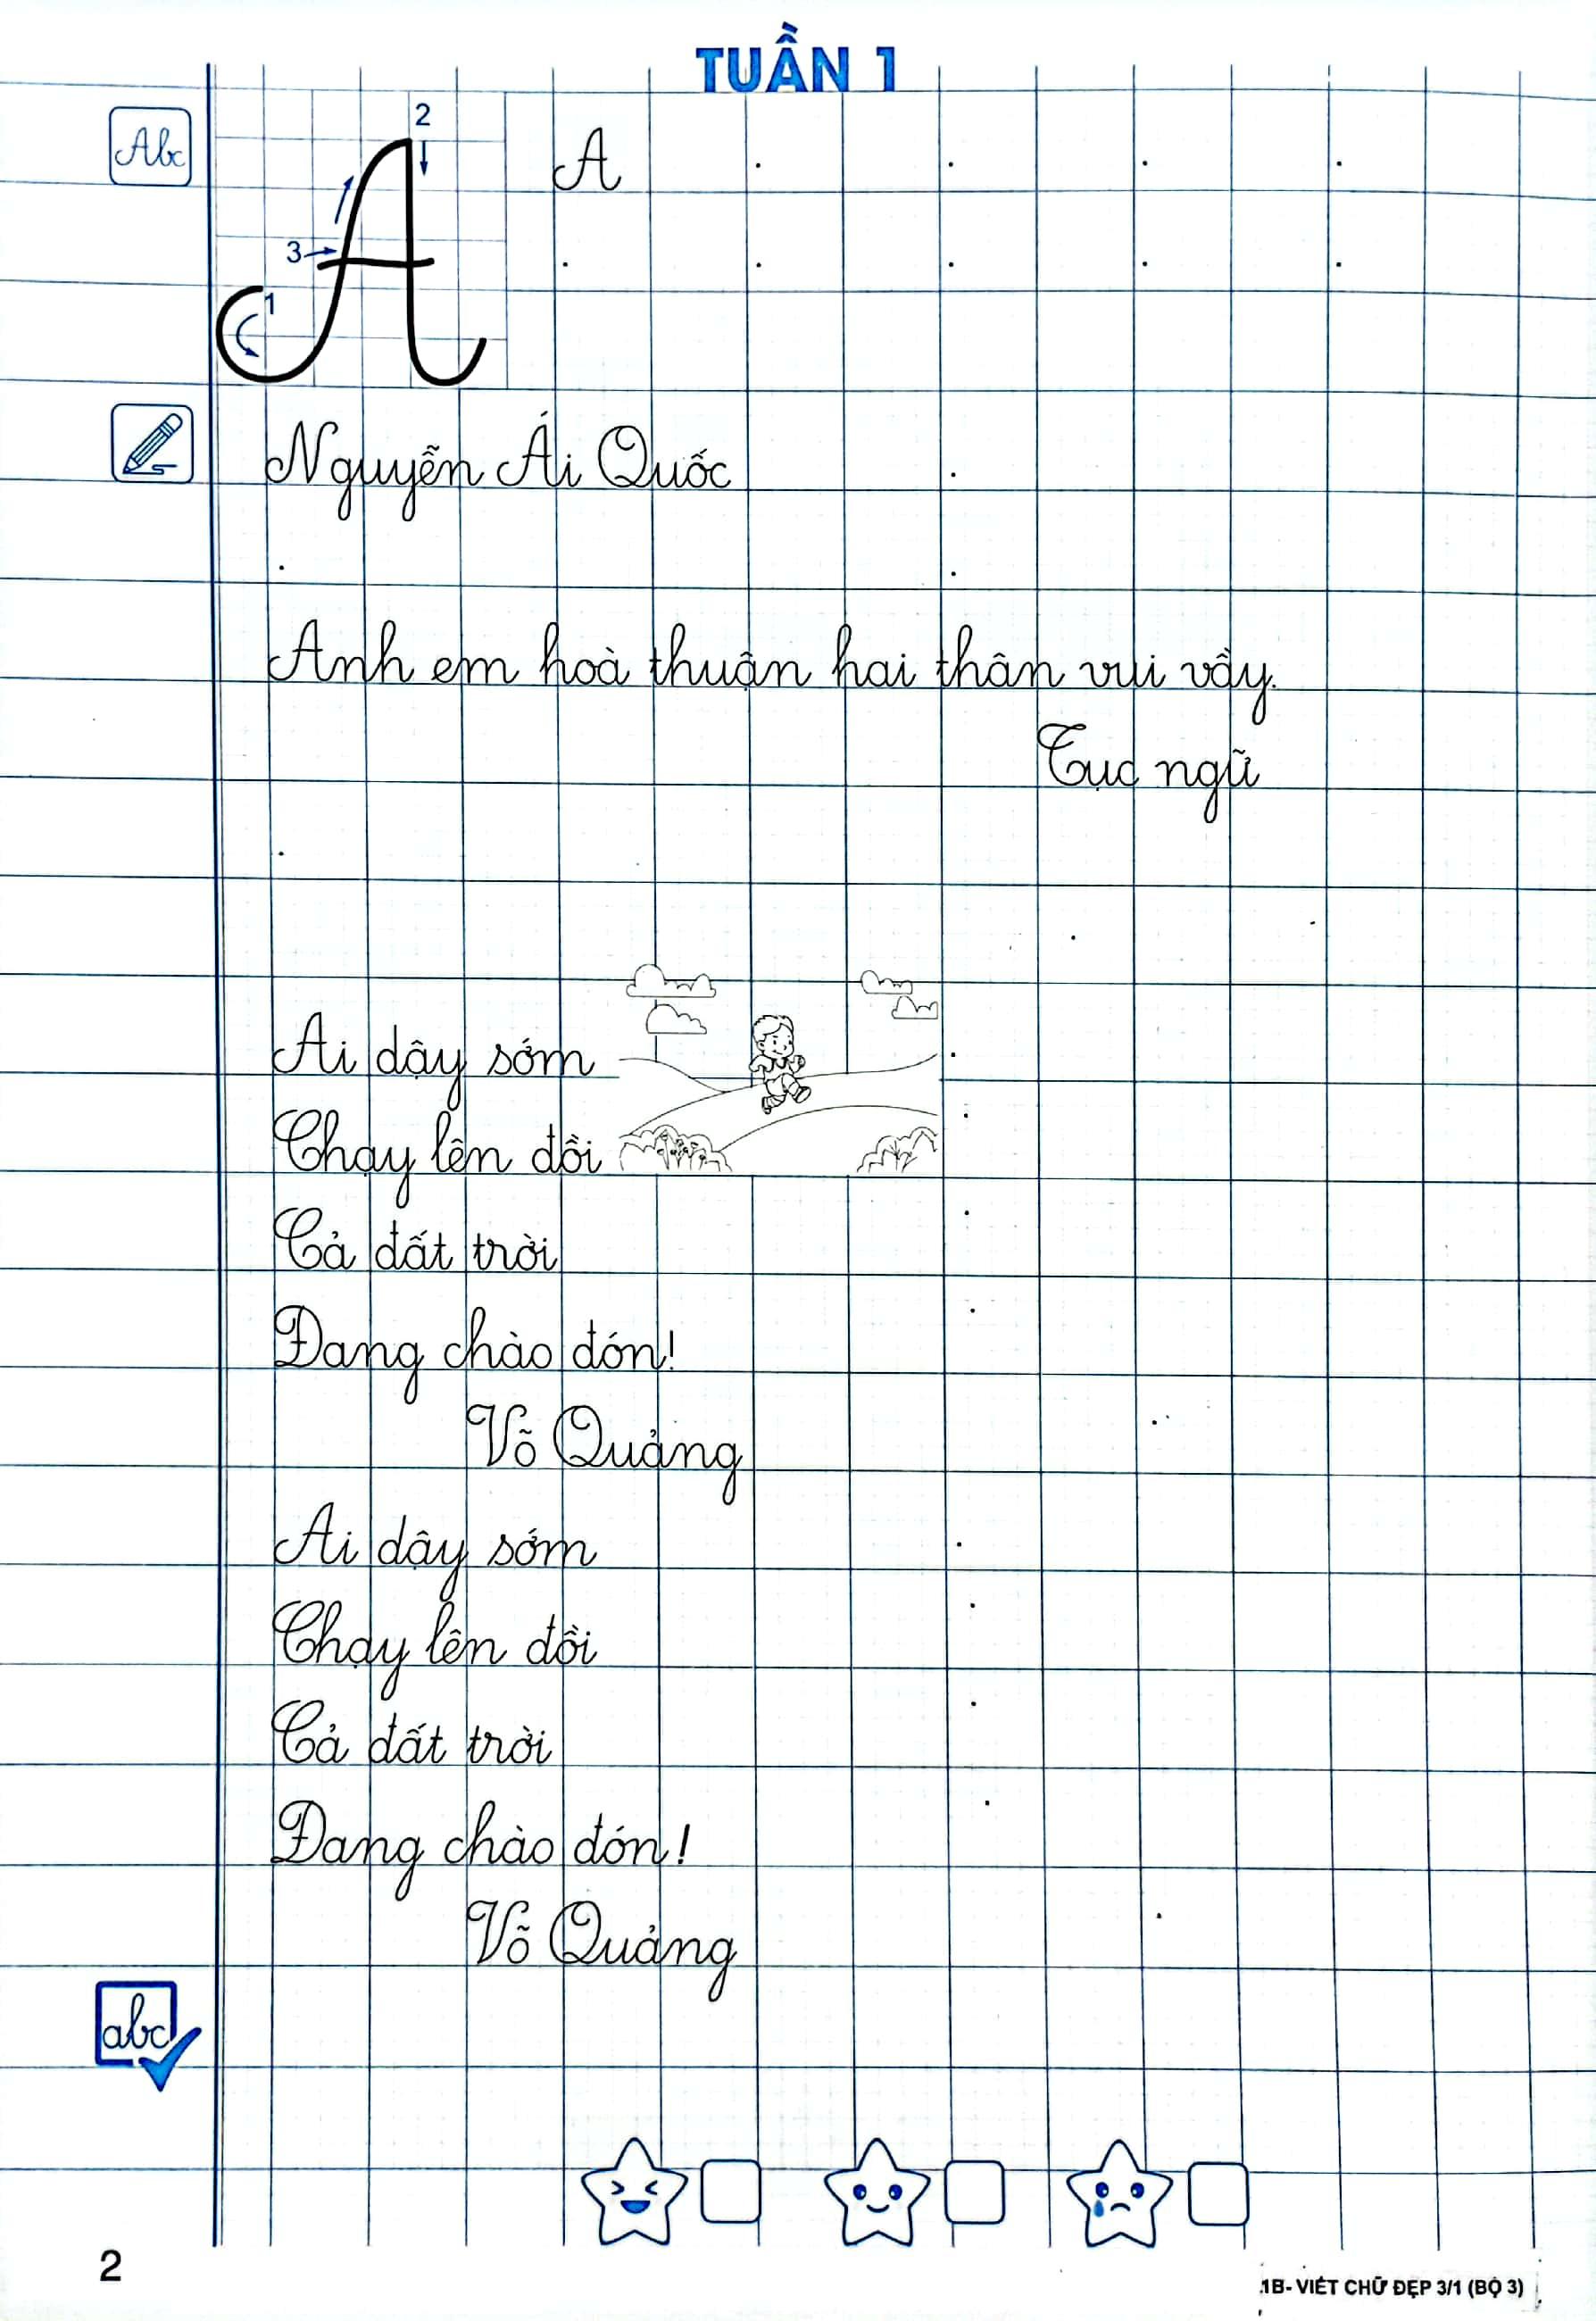 TUẦN 1
Abc
1
2
3
A
A
Nguyễn Ái Quốc
Anh em hoà thuận hai thân vui vầy.
Tục ngữ
Ai dậy sớm
Chạy lên đồi
Cả đất trời
Đang chào đón!
Võ Quảng
Ai dậy sớm
Chạy lên đồi
Cả đất trời
Đang chào đón!
Võ Quảng
abc
2
1B- VIẾT CHỮ ĐẸP 3/1 (BỘ 3)